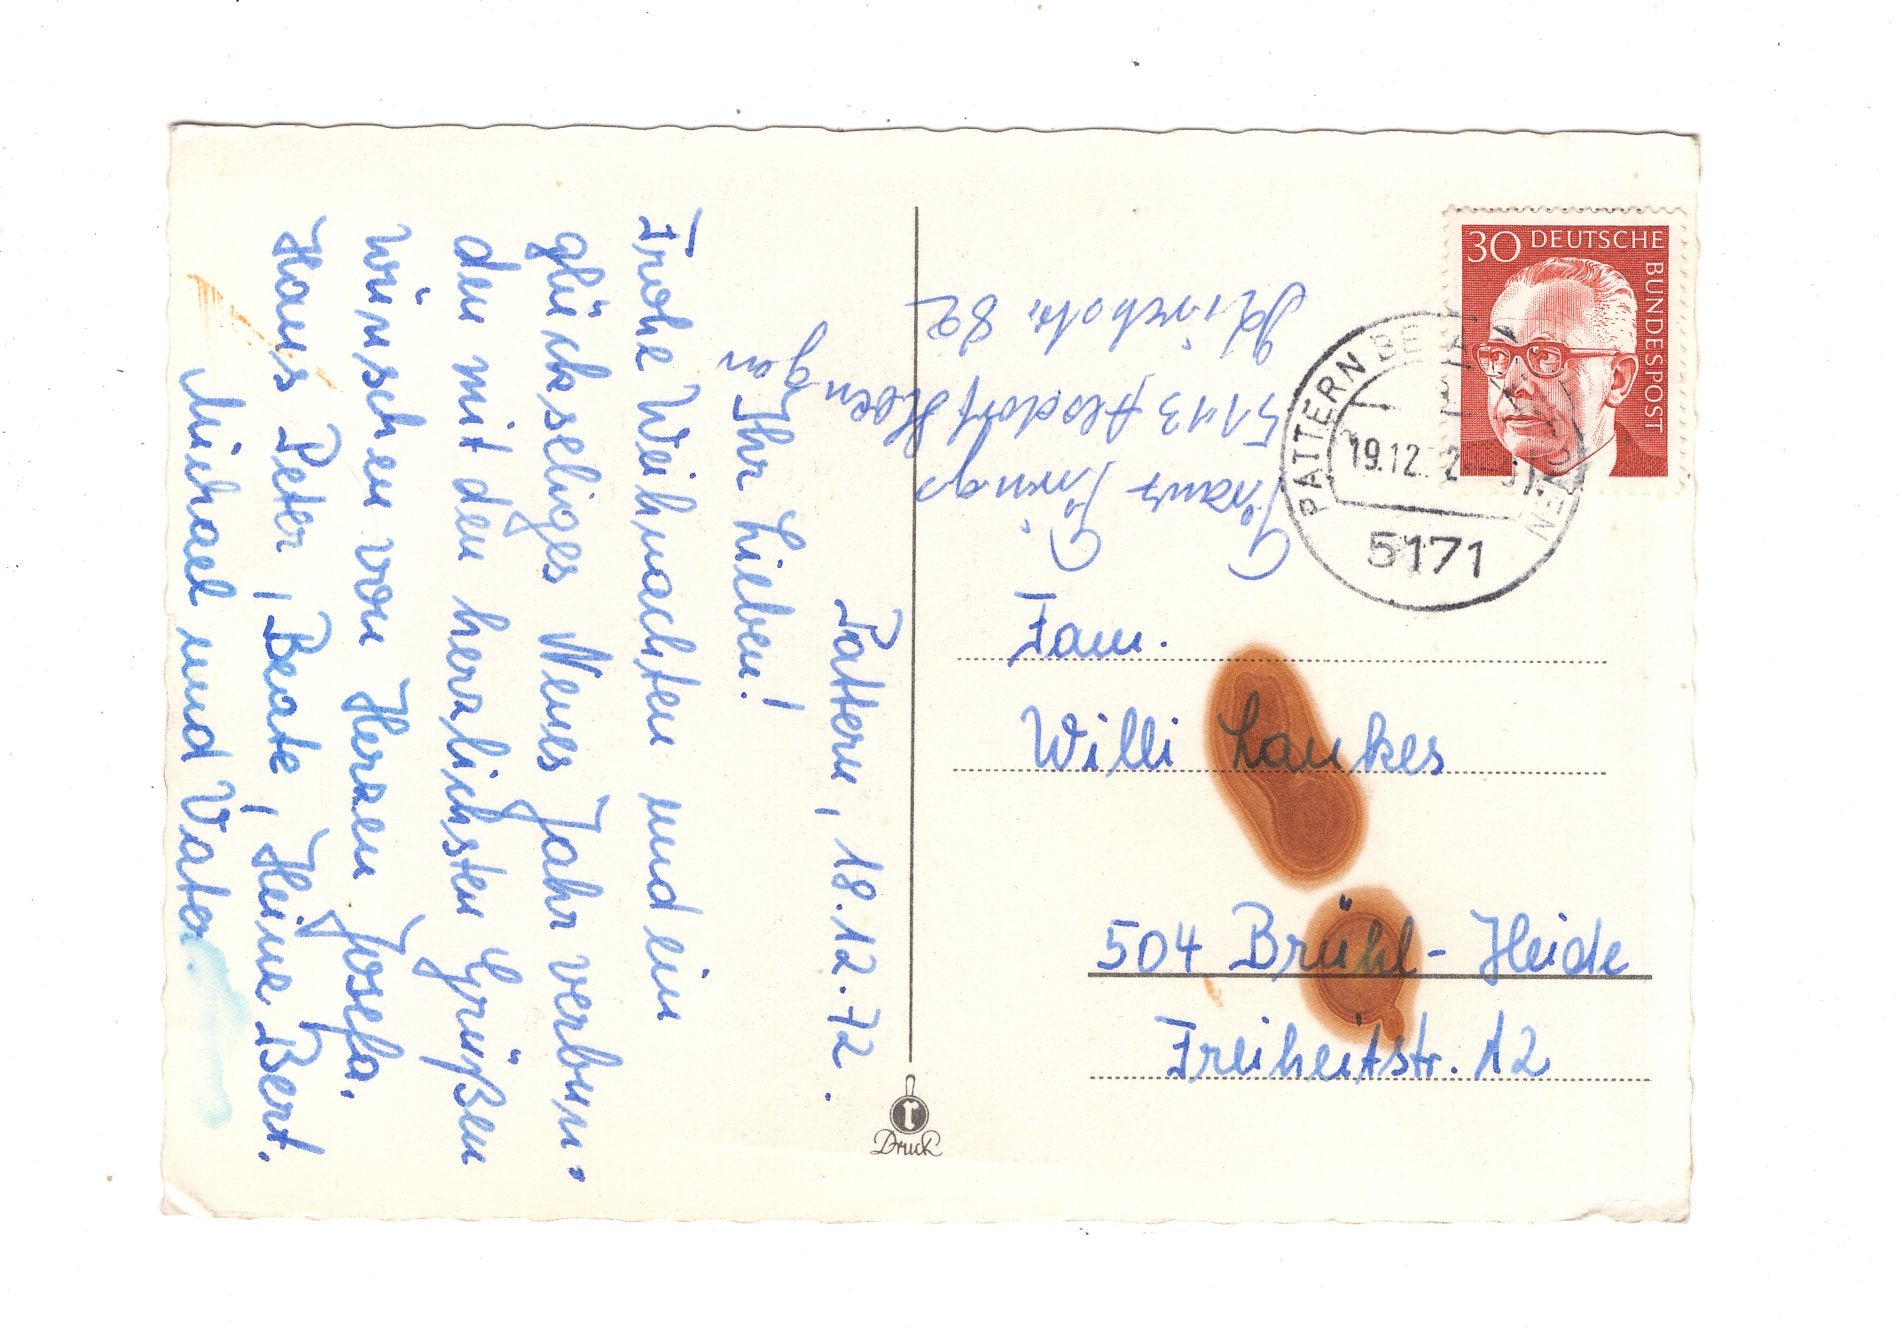 Pattern, 18.12.72.
Ihr Lieben!
Frohe Weihnachten und ein
glückseliges Neues Jahr verbun-
den mit den herzlichsten Grüßen
wünschen von Herzen Josefa.
Hans Peter, Beate, Heine Bert.
Michael und Vater.
5113 Alsdorf Hoengen
82
30 DEUTSCHE BUNDESPOST
PATTERN
19.12.
5171
Fam.
Willi Lankes
504 Brühl-Heide
Freiheitstr. 12
Druck